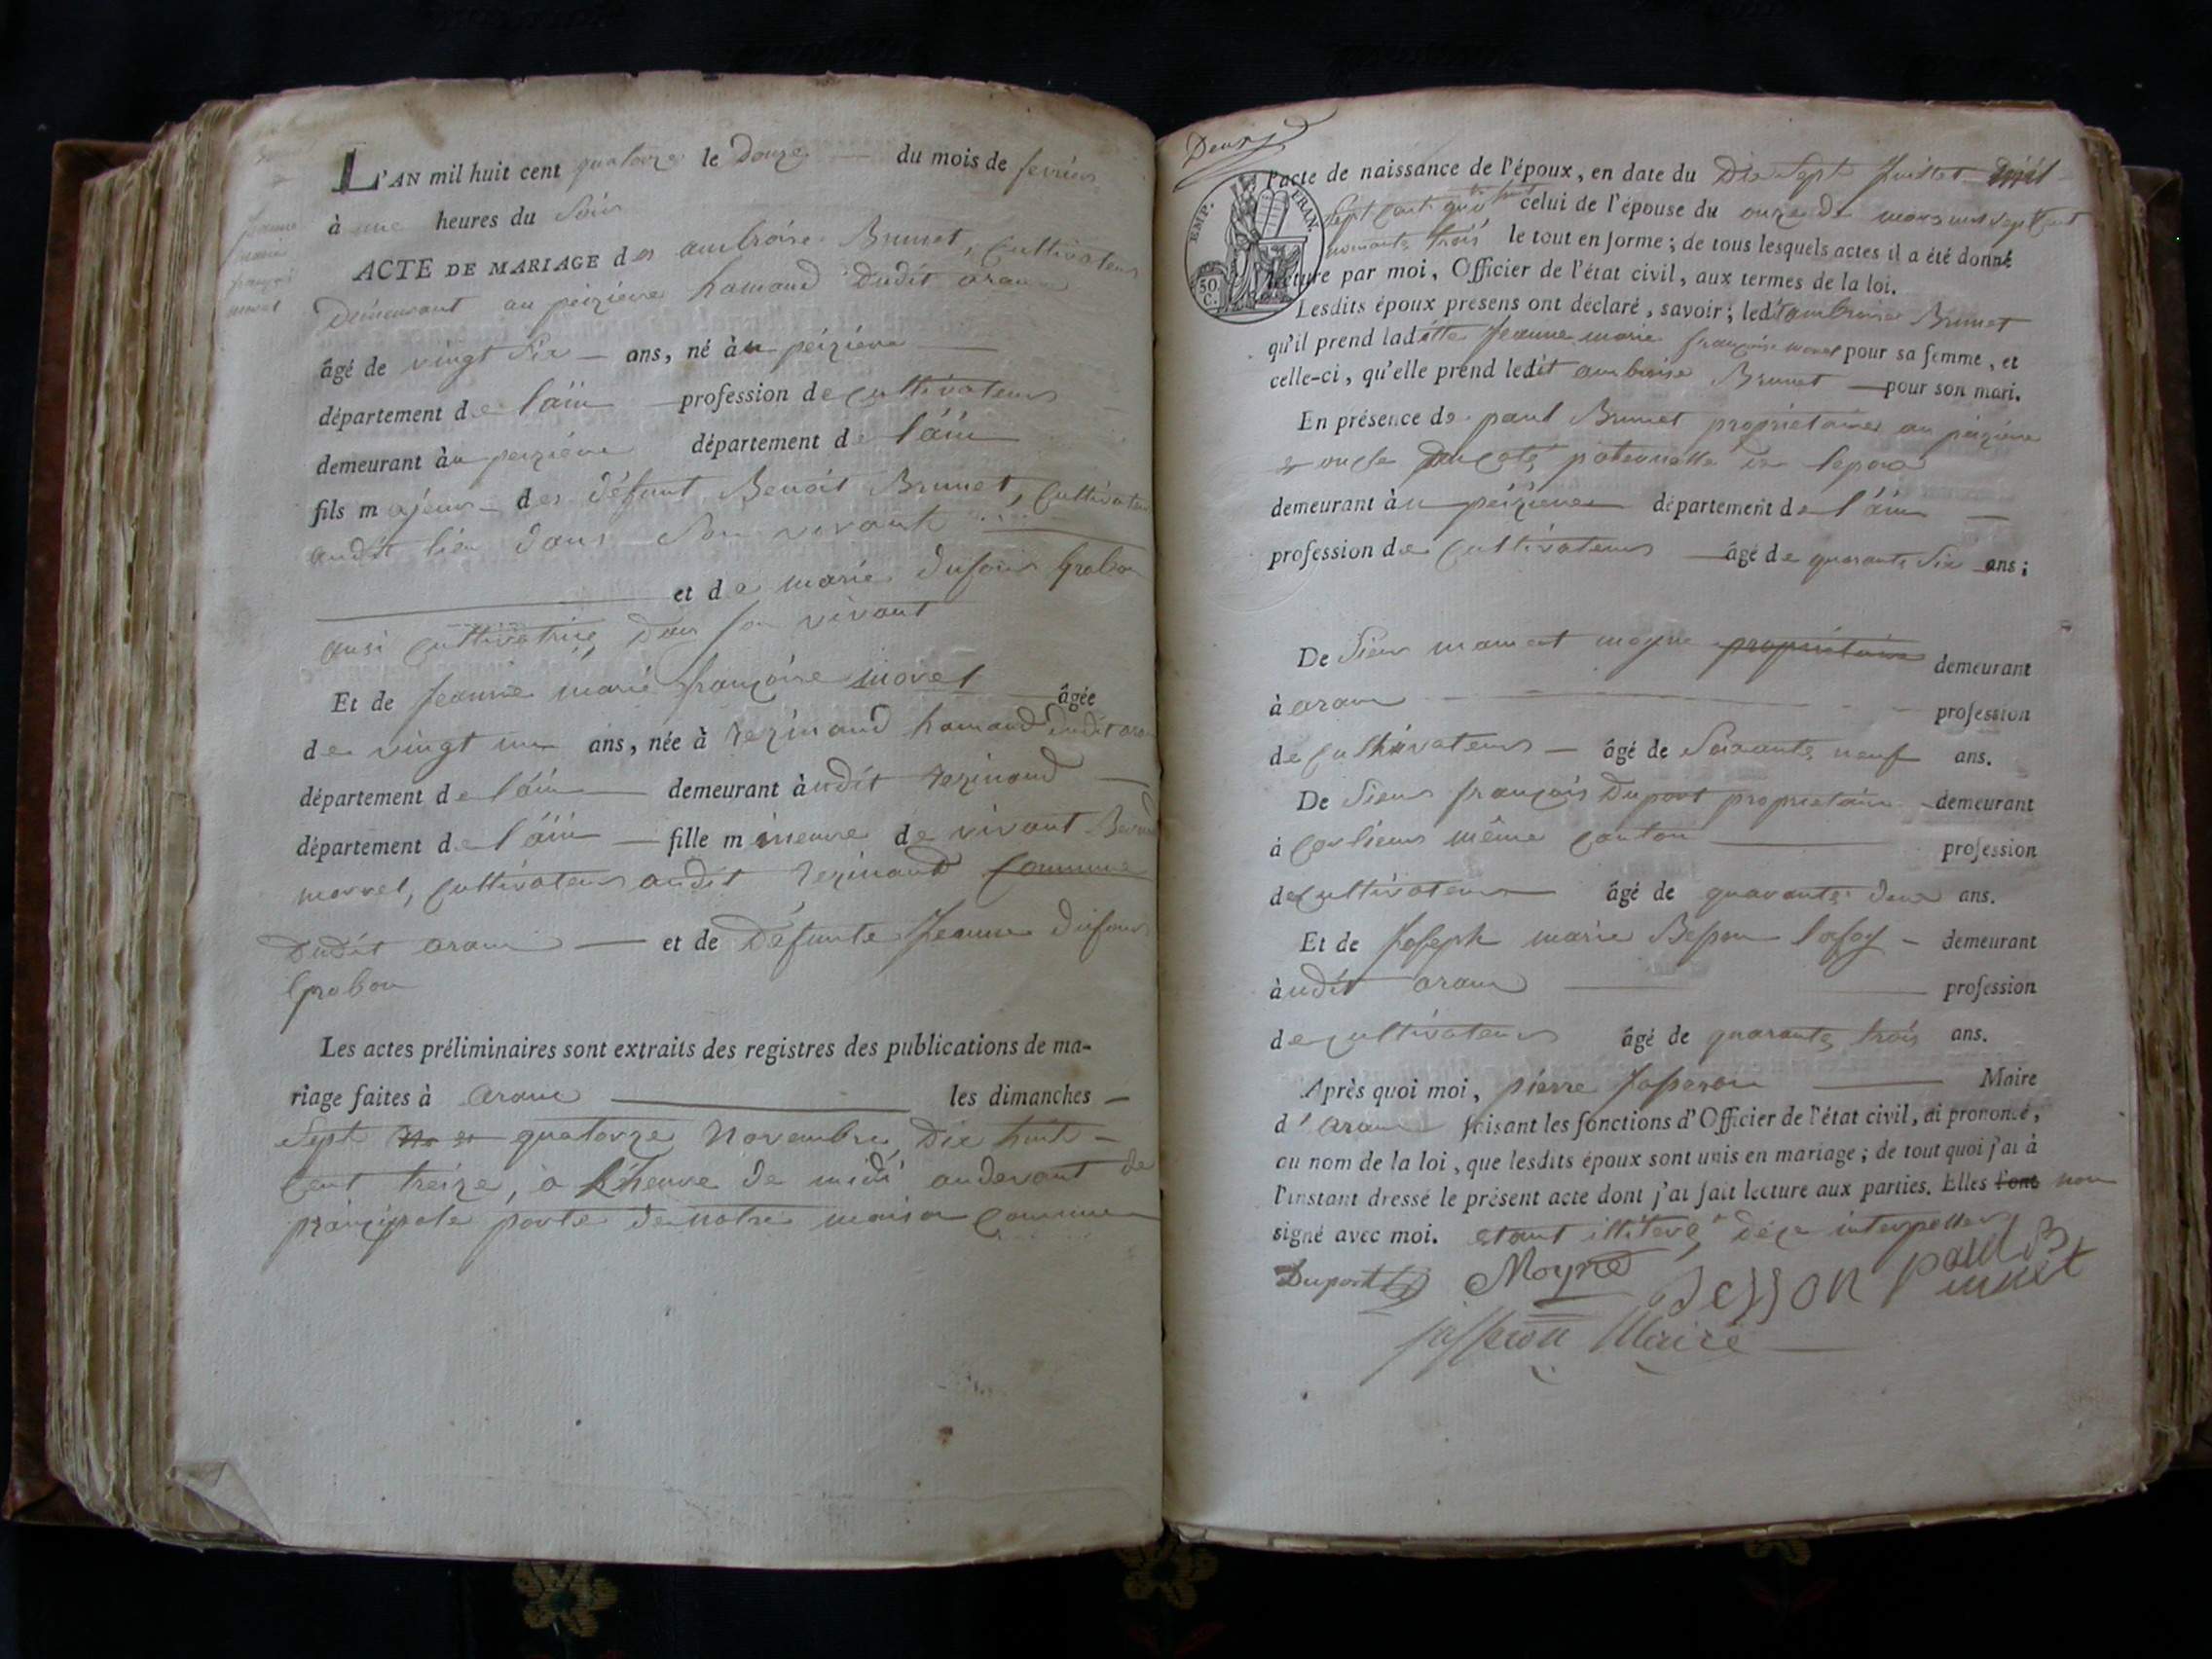 L'AN mil huit cent quatorze le Douze du mois de fevrier
à une heures du Soir
ACTE DE MARIAGE de ambroise Brunet, Cultivateur
Demeurant au peizieres hamaud Dudit aran
âgé de vingt Six ans, né àu peizière
département de lain profession de Cultivateur
demeurant àu peizière département de l'ain
fils majeur de défunt Benoit Brunet, Cultivateur
audit lieu dans Son vivant
et de marie dufour Grabou
ausi Cultivatrice, dans son vivant
Et de Jeanne marie françoise morel âgée
de vingt un ans, née à rezinand hamaud dudit aran
département de l'ain demeurant àudit rezinand
département de l'ain fille mineure de vivant
morrel, Cultivateur audit rezinand Commune
Dudit aran et de Défunte Jeanne Dufour
Grabou
Les actes préliminaires sont extraits des registres des publications de ma-
riage faites à aran les dimanches
Sept quatorze Novembre, Dix huit
Cent treize, a l'heure de midi audevant de
principale porte de notre maison Commune
jeanne
marie
françoi
morel
Deux
EMP. FRAN.
50 C.
l'acte de naissance de l'époux, en date du Dix Sept Juillet mil
Sept Cent celui de l'épouse du onze de mars mil Sept Cent
nonante trois le tout en forme; de tous lesquels actes il a été donné
lecture par moi, Officier de l'état civil, aux termes de la loi.
Lesdits époux présens ont déclaré, savoir; ledit ambroise Brunet
qu'il prend laditte Jeanne marie françoise morel pour sa femme, et
celle-ci, qu'elle prend ledit ambroise Brunet pour son mari.
En présence de paul Brunet propriétaire au peizière
et oncle du Coté paternelle de lepoux
demeurant àu peizieres département de l'ain
profession de Cultivateur âgé de quarante Six ans;
De Sieur mamert moyne propriétaire demeurant
à aran profession
de Cultivateur âgé de Soixante neuf ans.
De Sieur françois Duport propriétaire demeurant
à Corlieur même Canton profession
de Cultivateur âgé de quarante deux ans.
Et de Joseph marie Besson demeurant
àudit aran profession
de Cultivateur âgé de quarante trois ans.
Après quoi moi, pierre Jasseron Maire
d'aran faisant les fonctions d'Officier de l'état civil, ai prononcé,
au nom de la loi, que lesdits époux sont unis en mariage; de tout quoi j'ai à
l'instant dressé le présent acte dont j'ai fait lecture aux parties. Elles l'ont non
signé avec moi. etant
Duport Moyne Besson paul Brunet
jasseron Maire